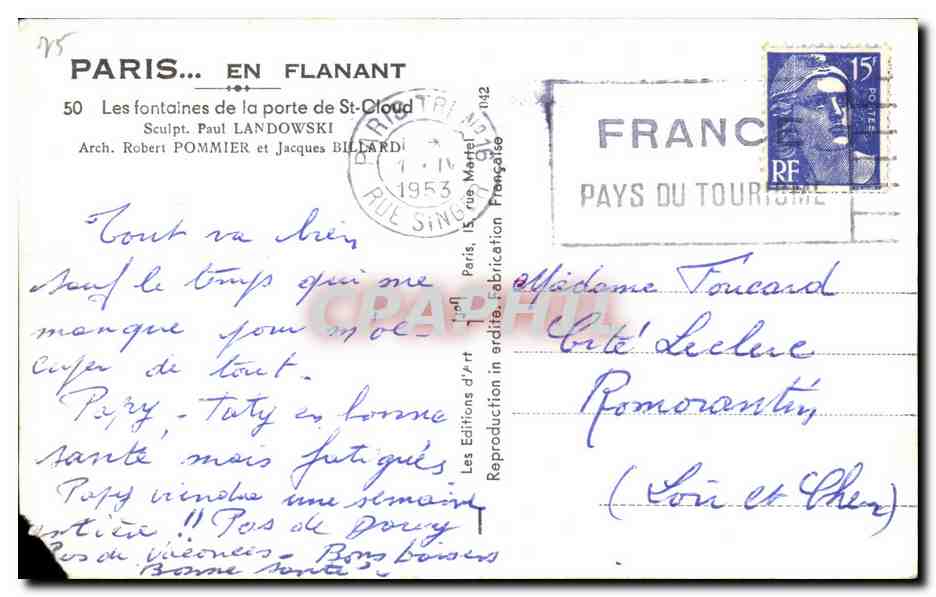 75
PARIS... EN FLANANT
50 Les fontaines de la porte de St-Cloud
Sculpt. Paul LANDOWSKI
Arch. Robert POMMIER et Jacques BILLARD
PARIS TRI Nº 16
1953
RUE SINGER
FRANCE
PAYS DU TOURISME
15F
POSTES
RF
Tout va bien
sauf le temps qui me
manque pour m'oc-
cuper de tout.
Papy - Taty en bonne
santé mais fatigués
Papy viendra une semaine
entière !! Pas de
Pas de vacances - Bons baisers
Bonne santé
Les Editions d'Art Yvon Paris, 15, rue Martel
Reproduction interdite. Fabrication Française
042
Madame Foucard
Cité Leclerc
Romorantin
(Loir et Cher)
CPAPHIL